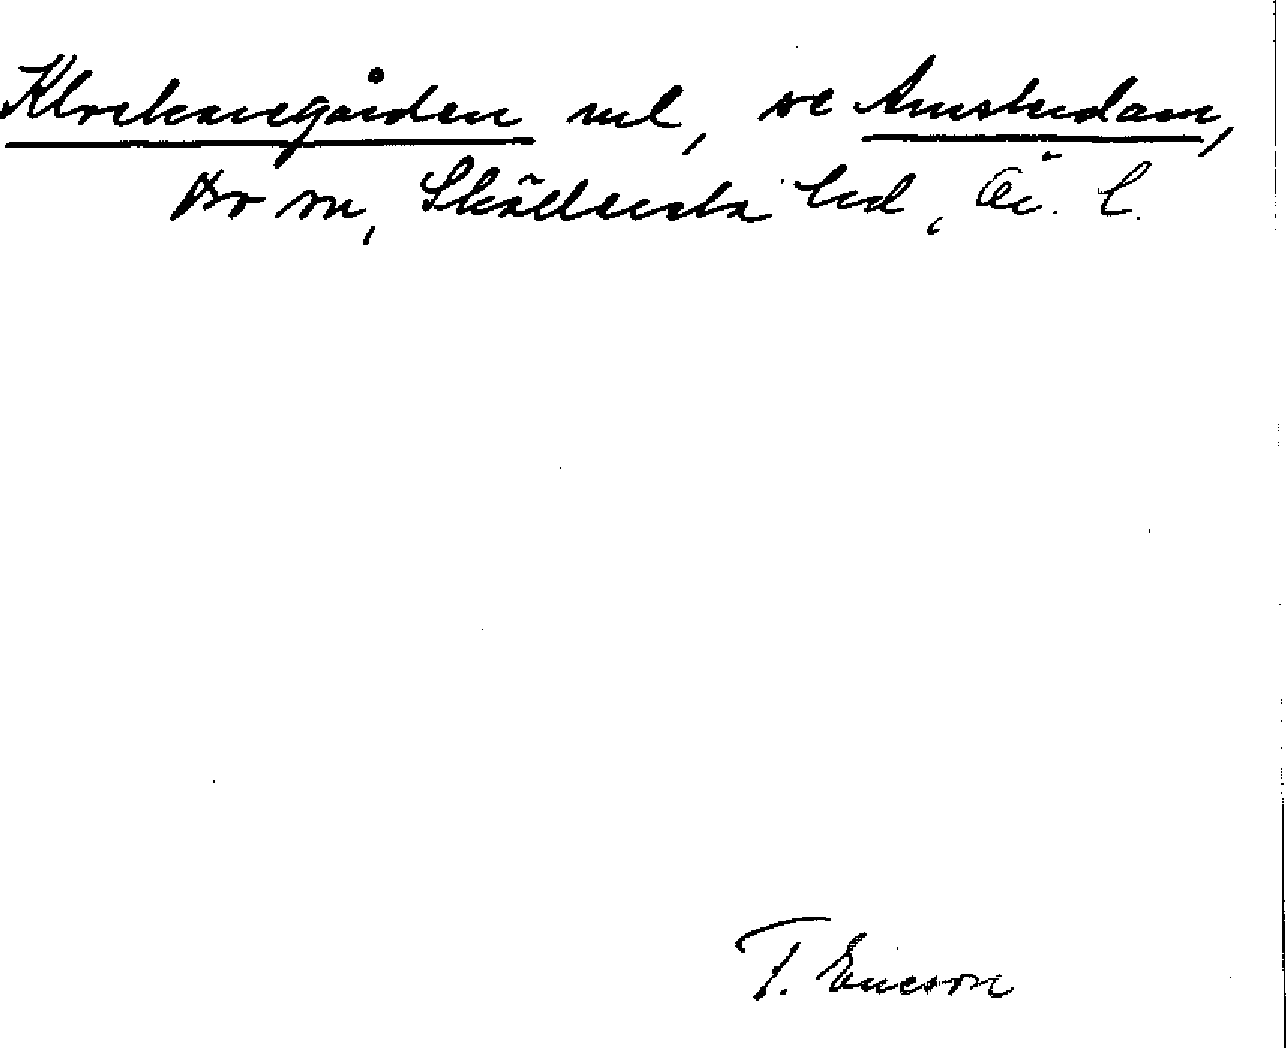 Klockaregården nml, se Amsterdam,
Bo sn, Sköllersta hd, Ö. L.
T. Ericson